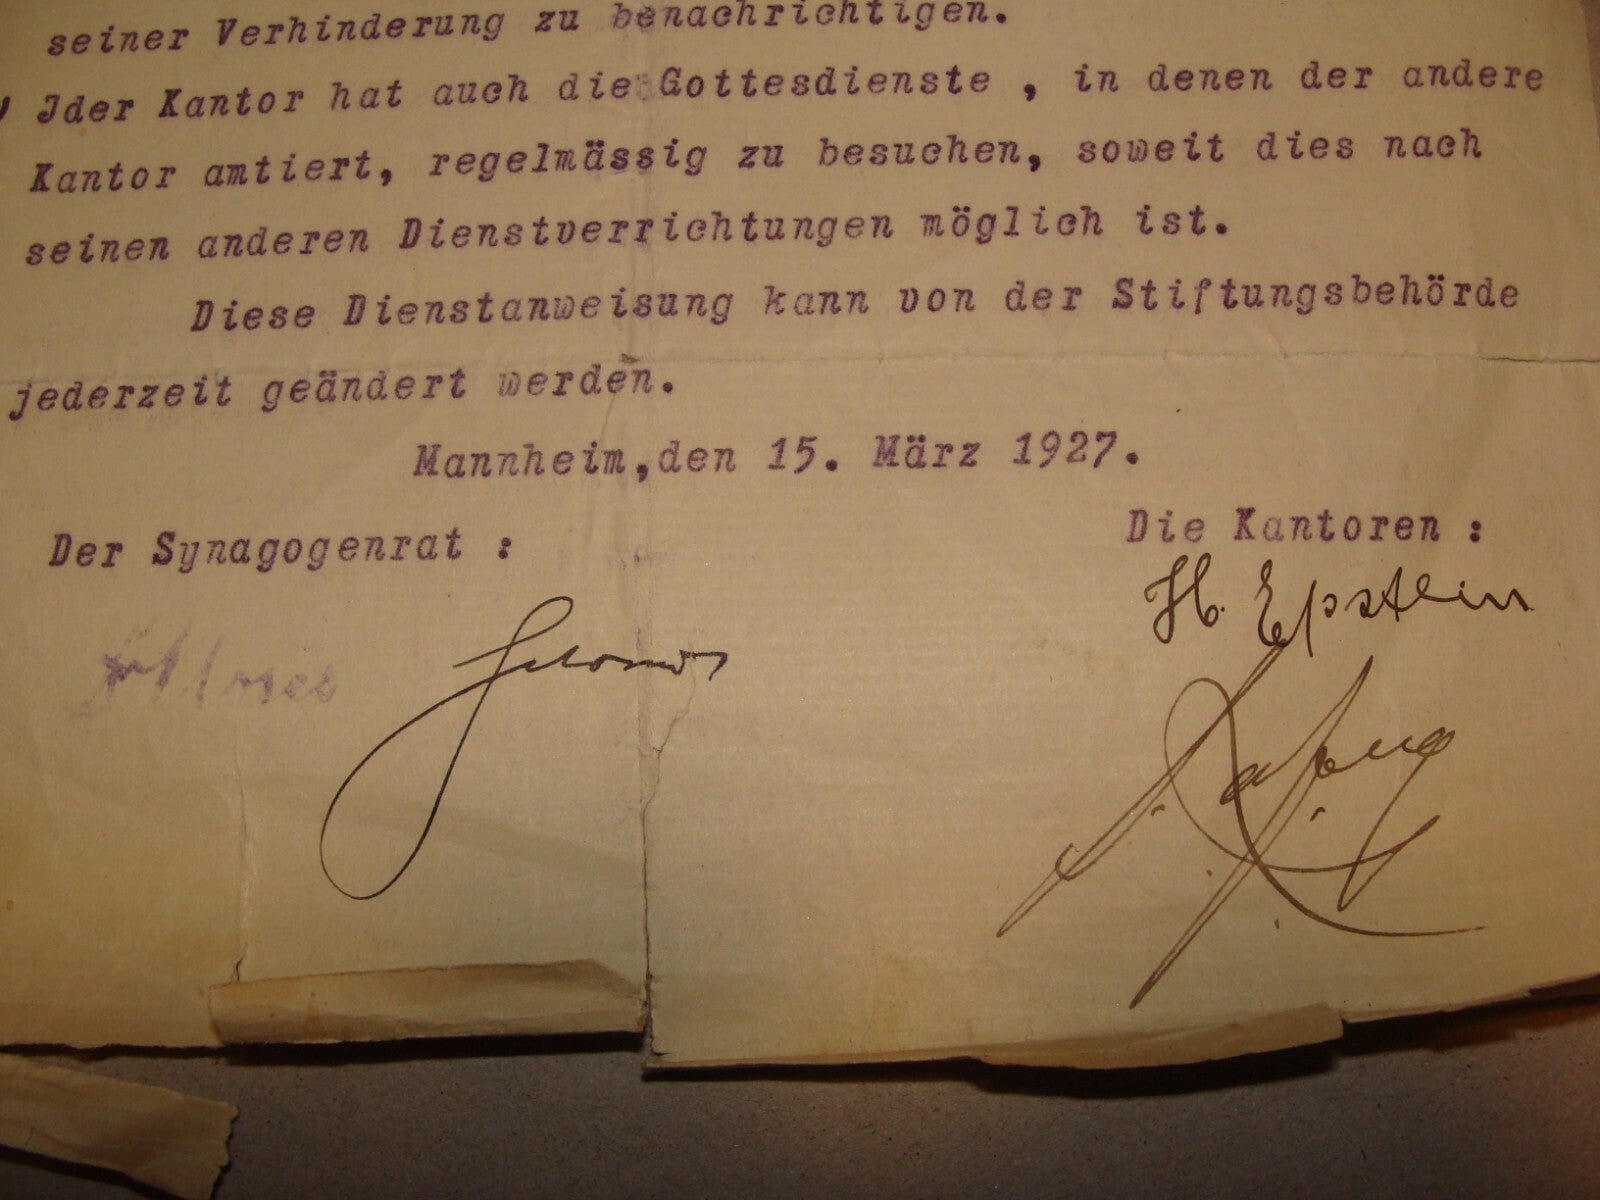 seiner Verhinderung zu benachrichtigen.
Jder Kantor hat auch die Gottesdienste , in denen der andere
Kantor amtiert, regelmässig zu besuchen, soweit dies nach
seinen anderen Dienstverrichtungen möglich ist.
Diese Dienstanweisung kann von der Stiftungsbehörde
jederzeit geändert werden.
Mannheim,den 15. März 1927.
Der Synagogenrat :
Die Kantoren :
H. Epstein